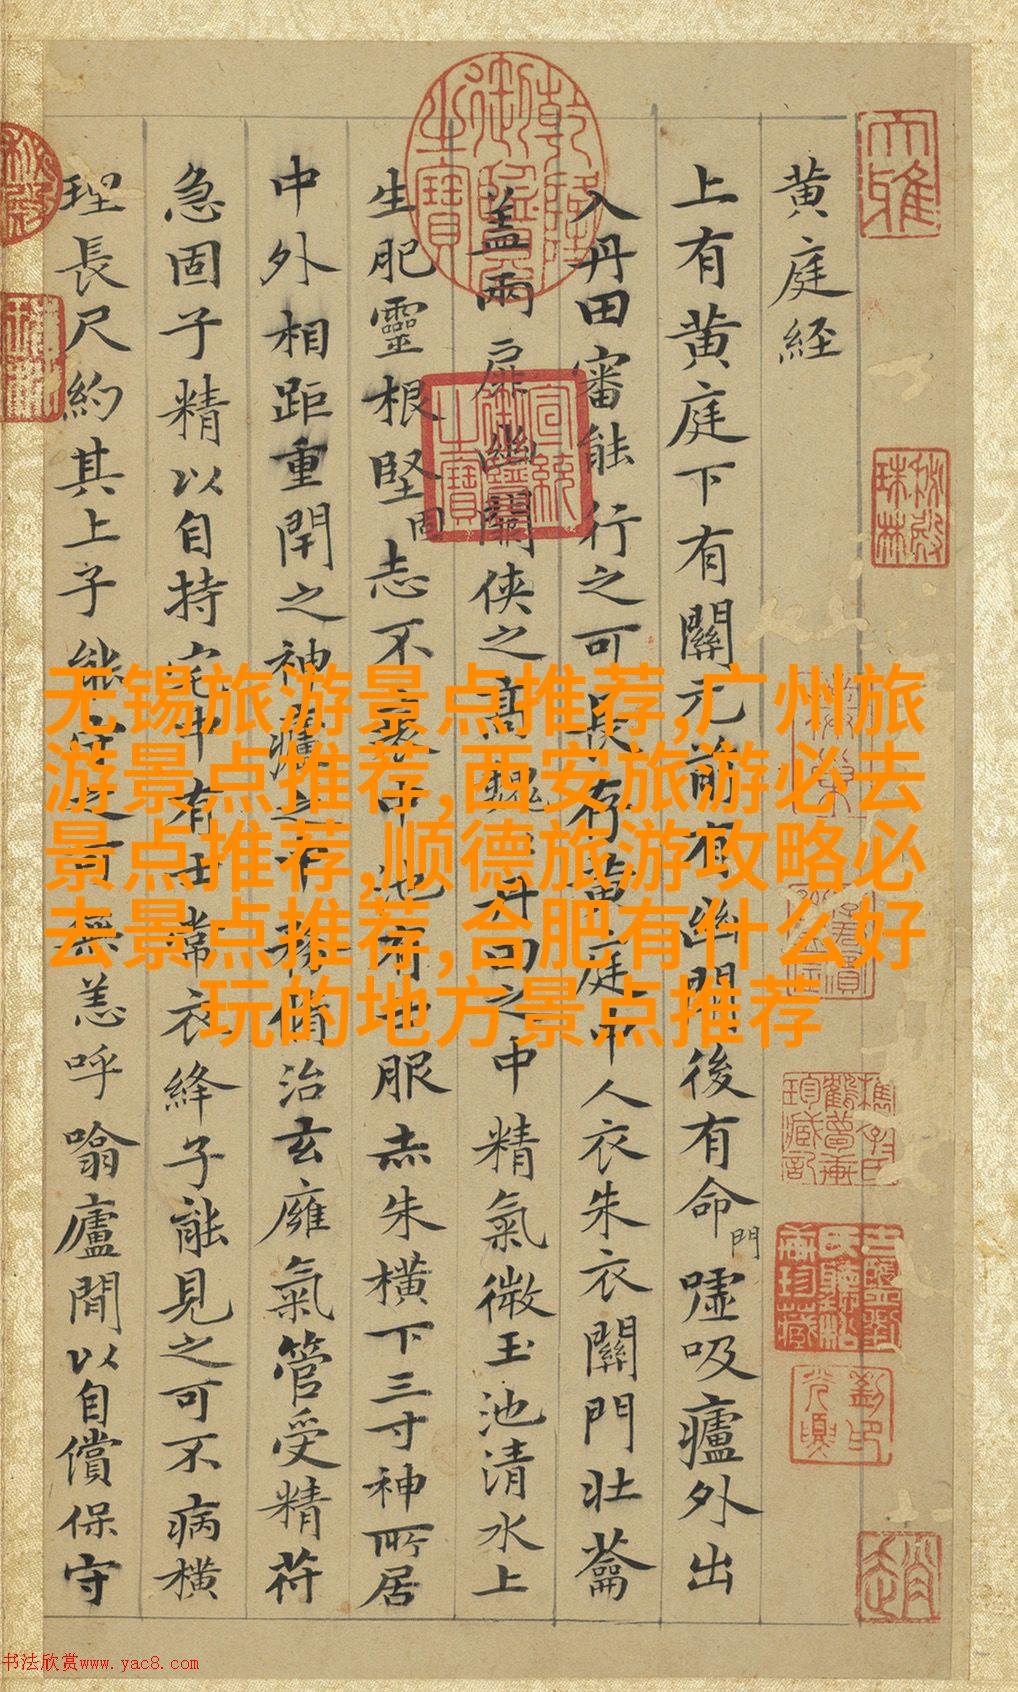 无锡旅游景点推荐,广州旅
游景点推荐,西安旅游必去
景点推荐,顺德旅游攻略必
去景点推荐,合肥有什么好
玩的地方景点推荐
黄庭経
上有黄庭下有關元前有幽闕後有命門嘘吸廬外出
入丹田審能行之可長存黄庭中人衣朱衣關門壮蘥
蓋兩扉幽關侠之高巍巍丹田之中精氣微玉池清水上
生肥靈根堅固志不衰中池有士服赤朱横下三寸神所居
中外相距重閇之神廬之中務脩治玄廱氣管受精符
急固子精以自持宅中有士常衣絳子能見之可不病横
理長尺約其上子能守之可無恙呼噏廬間以自償保守
乾隆御覽之寶
宣統御覽之寶
大雅
书法欣赏www.yac8.com